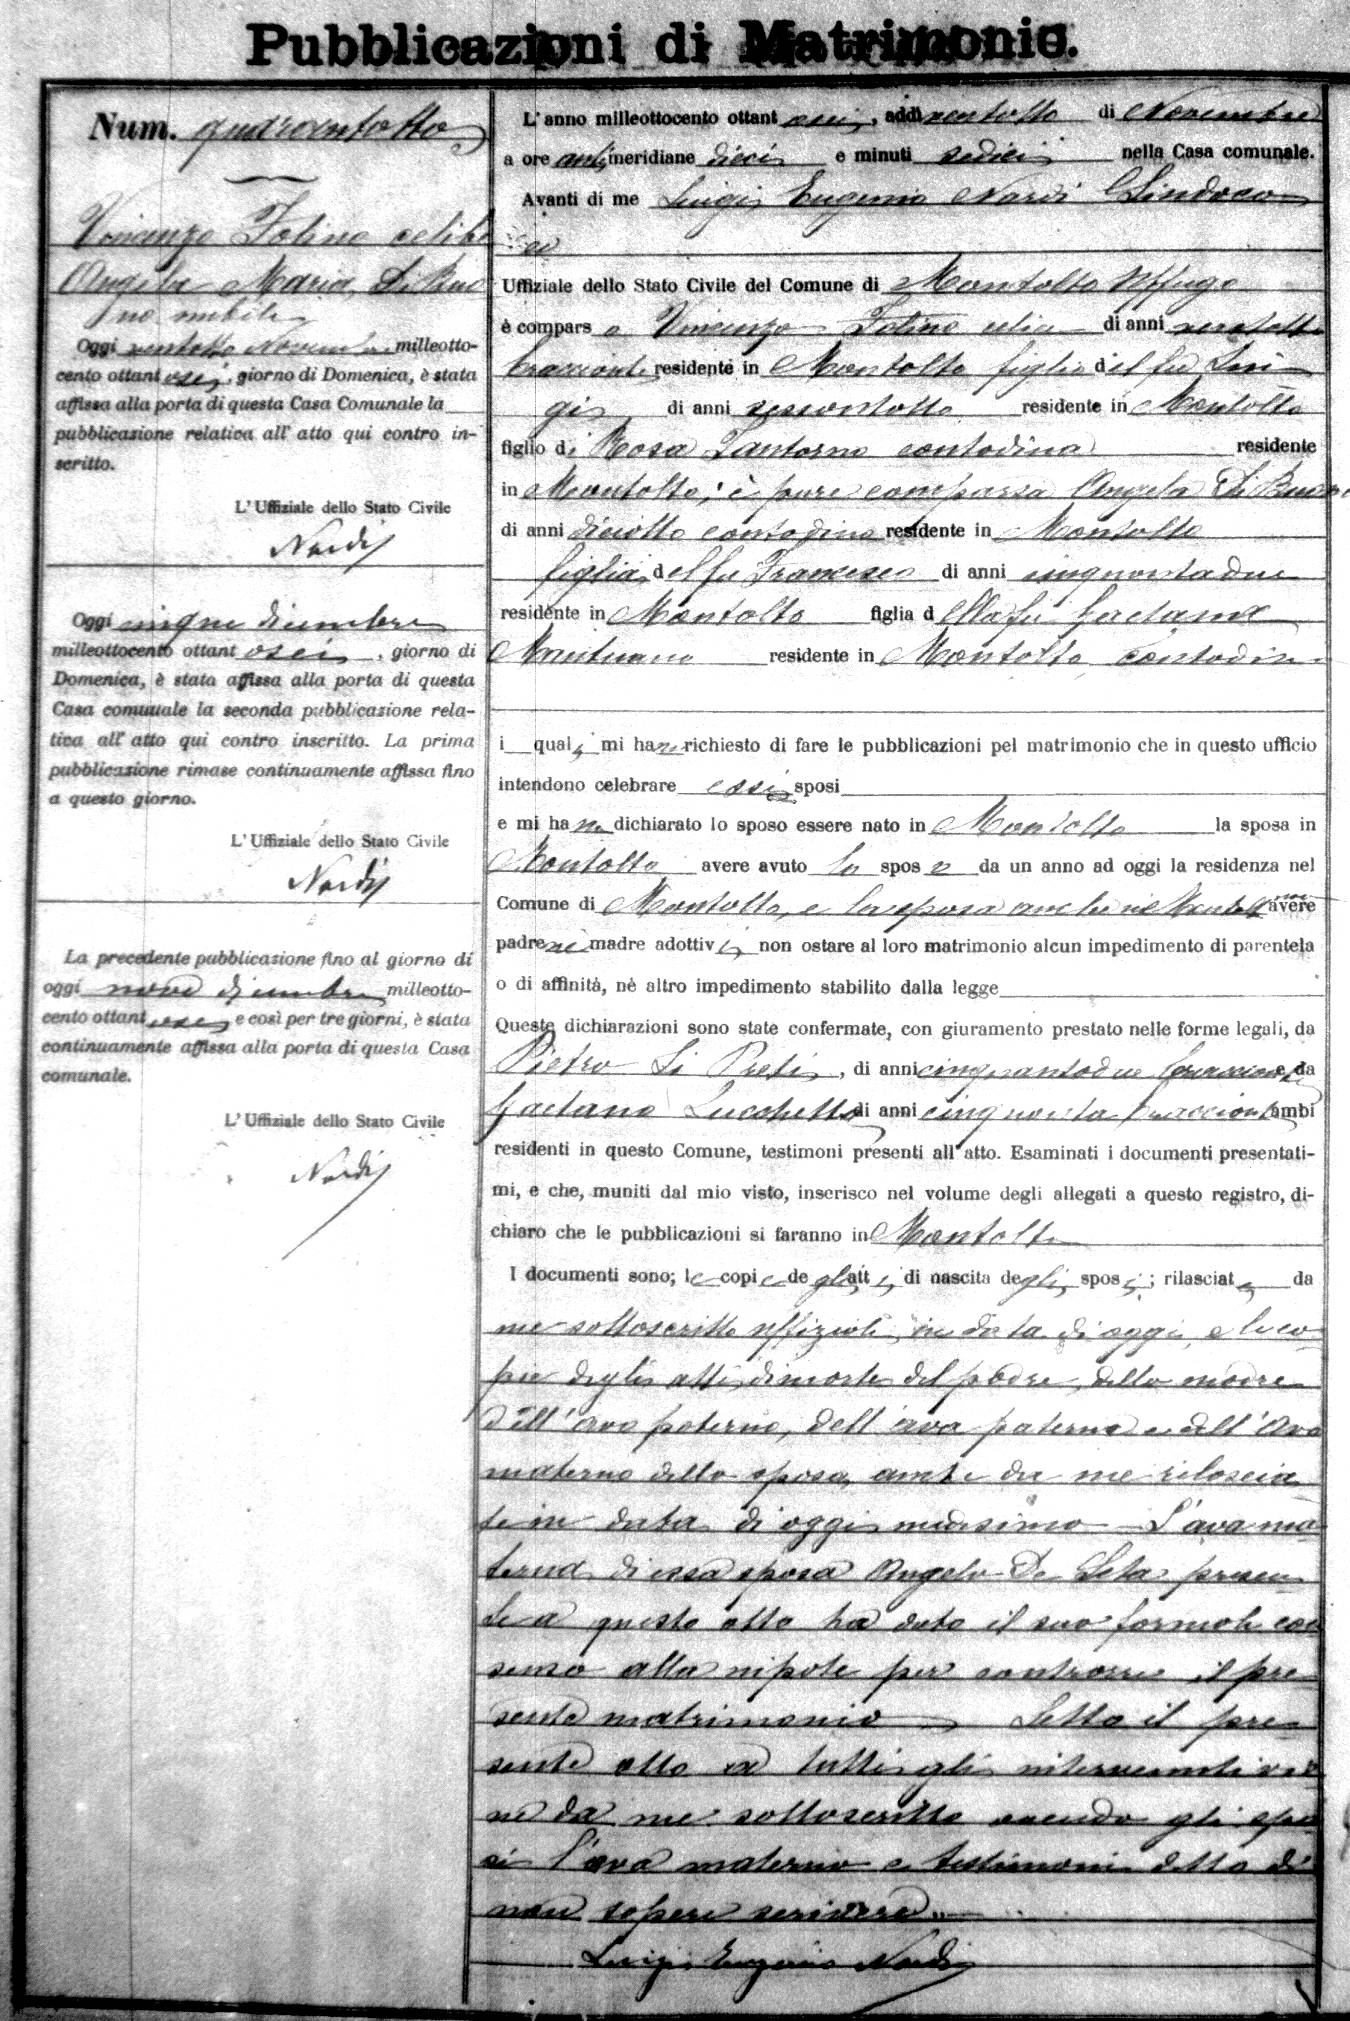 Pubblicazioni di Matrimonio.
Num. quarantotto
Vincenzo Folino celibe
Angela Maria Di Buo
no nubile
Oggi ventotto Novembre milleotto-
cento ottantasei, giorno di Domenica, è stata
affissa alla porta di questa Casa Comunale la
pubblicazione relativa all' atto qui contro in-
scritto.
L' Uffiziale dello Stato Civile
Nardi
Oggi cinque dicembre
milleottocento ottantasei, giorno di
Domenica, è stata affissa alla porta di questa
Casa comunale la seconda pubblicazione rela-
tiva all' atto qui contro inscritto. La prima
pubblicazione rimase continuamente affissa fino
a questo giorno.
L' Uffiziale dello Stato Civile
Nardi
La precedente pubblicazione fino al giorno di
oggi nove dicembre milleotto-
cento ottantasei e così per tre giorni, è stata
continuamente affissa alla porta di questa Casa
comunale.
L' Uffiziale dello Stato Civile
Nardi
L' anno milleottocento ottantasei, addì ventotto di Novembre
a ore antimeridiane dieci e minuti sedici nella Casa comunale.
Avanti di me Luigi Eugenio Nardi Sindaco
ed
Uffiziale dello Stato Civile del Comune di Montalto Uffugo
è comparso Vincenzo Folino di anni ventotto
bracciante residente in Montalto figlio del fu Lui
gi di anni sessantotto residente in Montalto
figlio di Rosa Santorno contadina residente
in Montalto; è pure comparsa Angela Di Buono
di anni diciotto contadina residente in Montalto
figlia del fu Francesco di anni cinquantadue
residente in Montalto figlia della fu Gaetana
residente in Montalto contadina
i quali mi hanno richiesto di fare le pubblicazioni pel matrimonio che in questo ufficio
intendono celebrare essi sposi
e mi hanno dichiarato lo sposo essere nato in Montalto la sposa in
Montalto avere avuto lo sposo da un anno ad oggi la residenza nel
Comune di Montalto, e la sposa anche in Montalto non avere
padre nè madre adottivi, non ostare al loro matrimonio alcun impedimento di parentela
o di affinità, nè altro impedimento stabilito dalla legge
Queste dichiarazioni sono state confermate, con giuramento prestato nelle forme legali, da
Pietro Li Preti, di anni cinquantadue bracciante e da
Gaetano Lucchetta di anni cinquanta bracciante ambi
residenti in questo Comune, testimoni presenti all' atto. Esaminati i documenti presentati-
mi, e che, muniti dal mio visto, inserisco nel volume degli allegati a questo registro, di-
chiaro che le pubblicazioni si faranno in Montalto
I documenti sono; le copie degli atti di nascita degli sposi; rilasciate da
me sottoscritto uffiziale in data di oggi, e le co-
pie degli atti di morte del padre, della madre
dell' avo paterno, dell' ava paterna e dell' Avo
materno della sposa, anche da me rilascia
te in data di oggi medesimo — L' ava ma
terna di essa sposa Angela De Seta presen
te a questo atto ha dato il suo formale con
senso alla nipote per contrarre il pre
sente matrimonio — Letto il pre
sente atto a tutti gli intervenuti vie
ne da me sottoscritto avendo gli spo
si l' ava materna e testimoni detto di
non sapere scrivere.
Luigi Eugenio Nardi